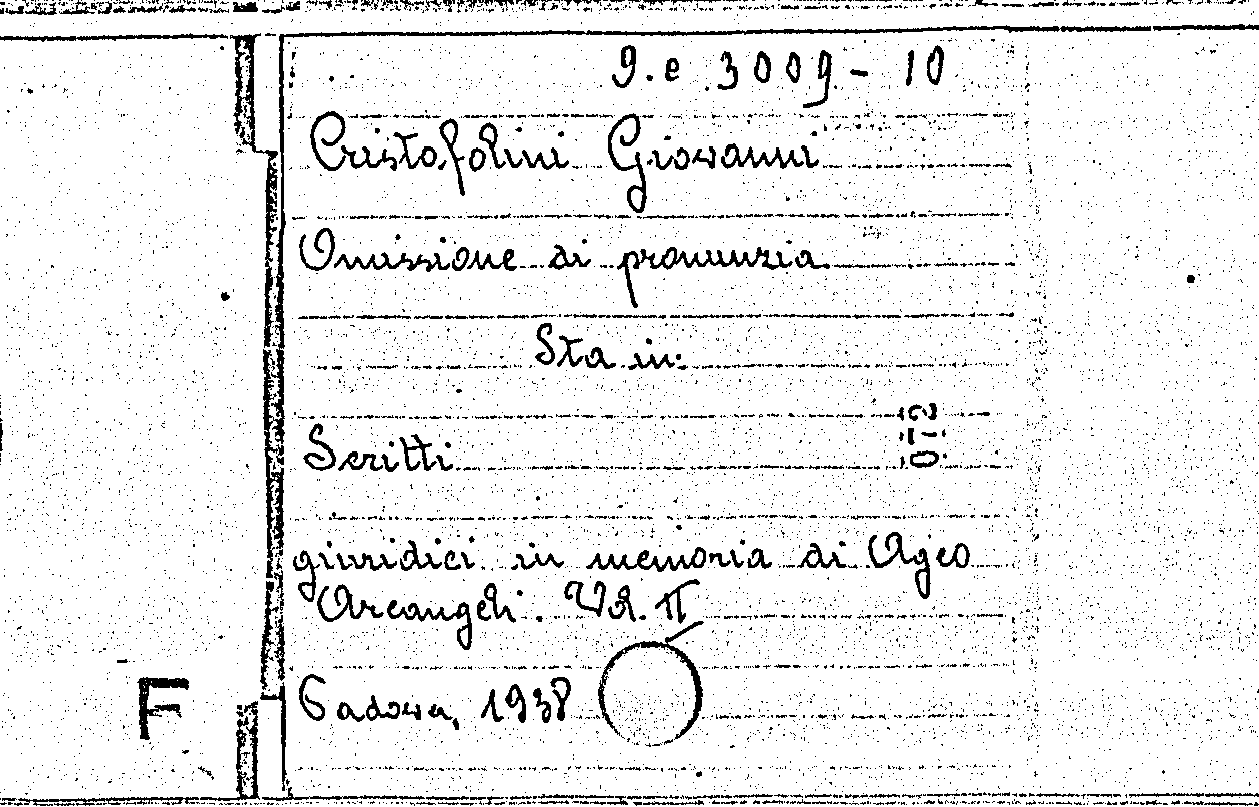 g.e 3009-10
Cristofolini Giovanni
Omissione di pronunzia
Sta in:
012
Scritti
giuridici in memoria di Ageo
Arcangeli. Vol. II
Padova, 1938
F